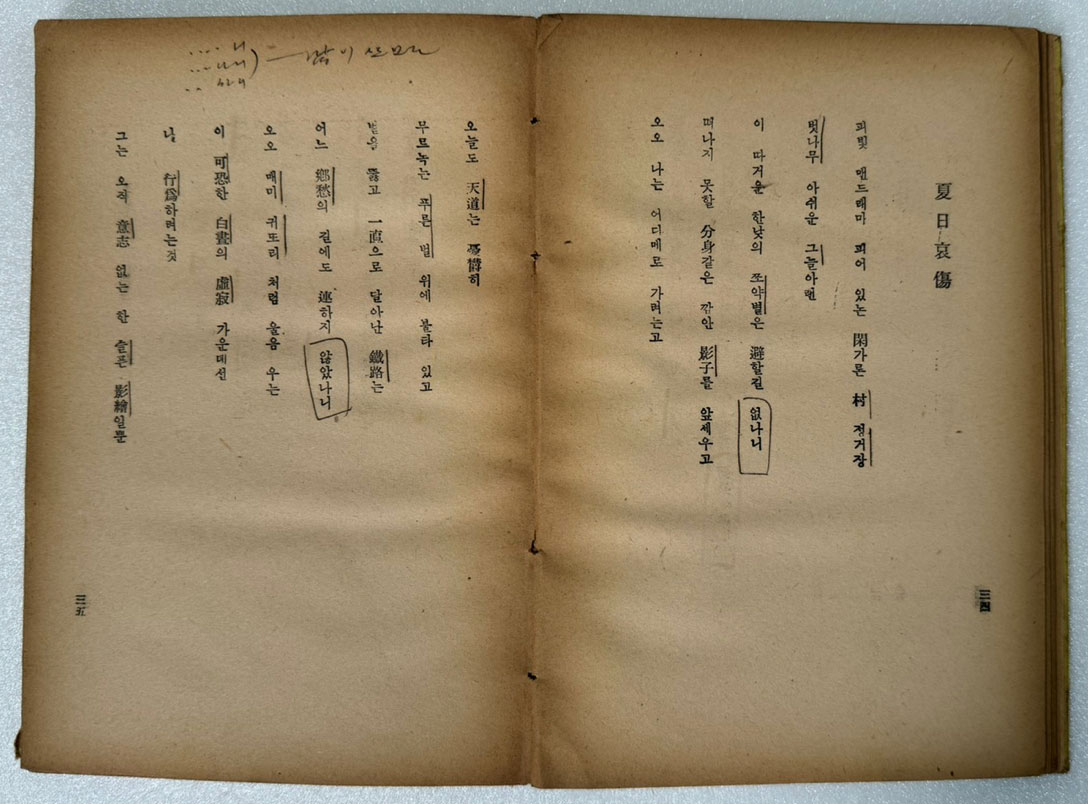 夏日哀傷
피빛 맨드래마 피어 있는 閑가론 村 정거장
벗나무 아쉬운 그늘아랜
이 따거운 한낮의 쪼약볕은 避할길 없나니
떠나지 못할 分身같은 깜안 影子를 앞세우고
오오 나는 어디메로 가려는고
三四
....니
...나니
..하니
많이
오늘도 天道는
무르녹는 푸른 벌 위에 불타 있고
벌을 뚫고 一直으로 달아난 鐵路는
어느 鄕愁의 길에도 連하지 않았나니
오오 매미 귀또리 처럼 울음 우는
이 可恐한 白晝의 虛寂 가운데선
行爲하려는것
그는 오직 意志 없는 한 슬픈 影繪일뿐
三五